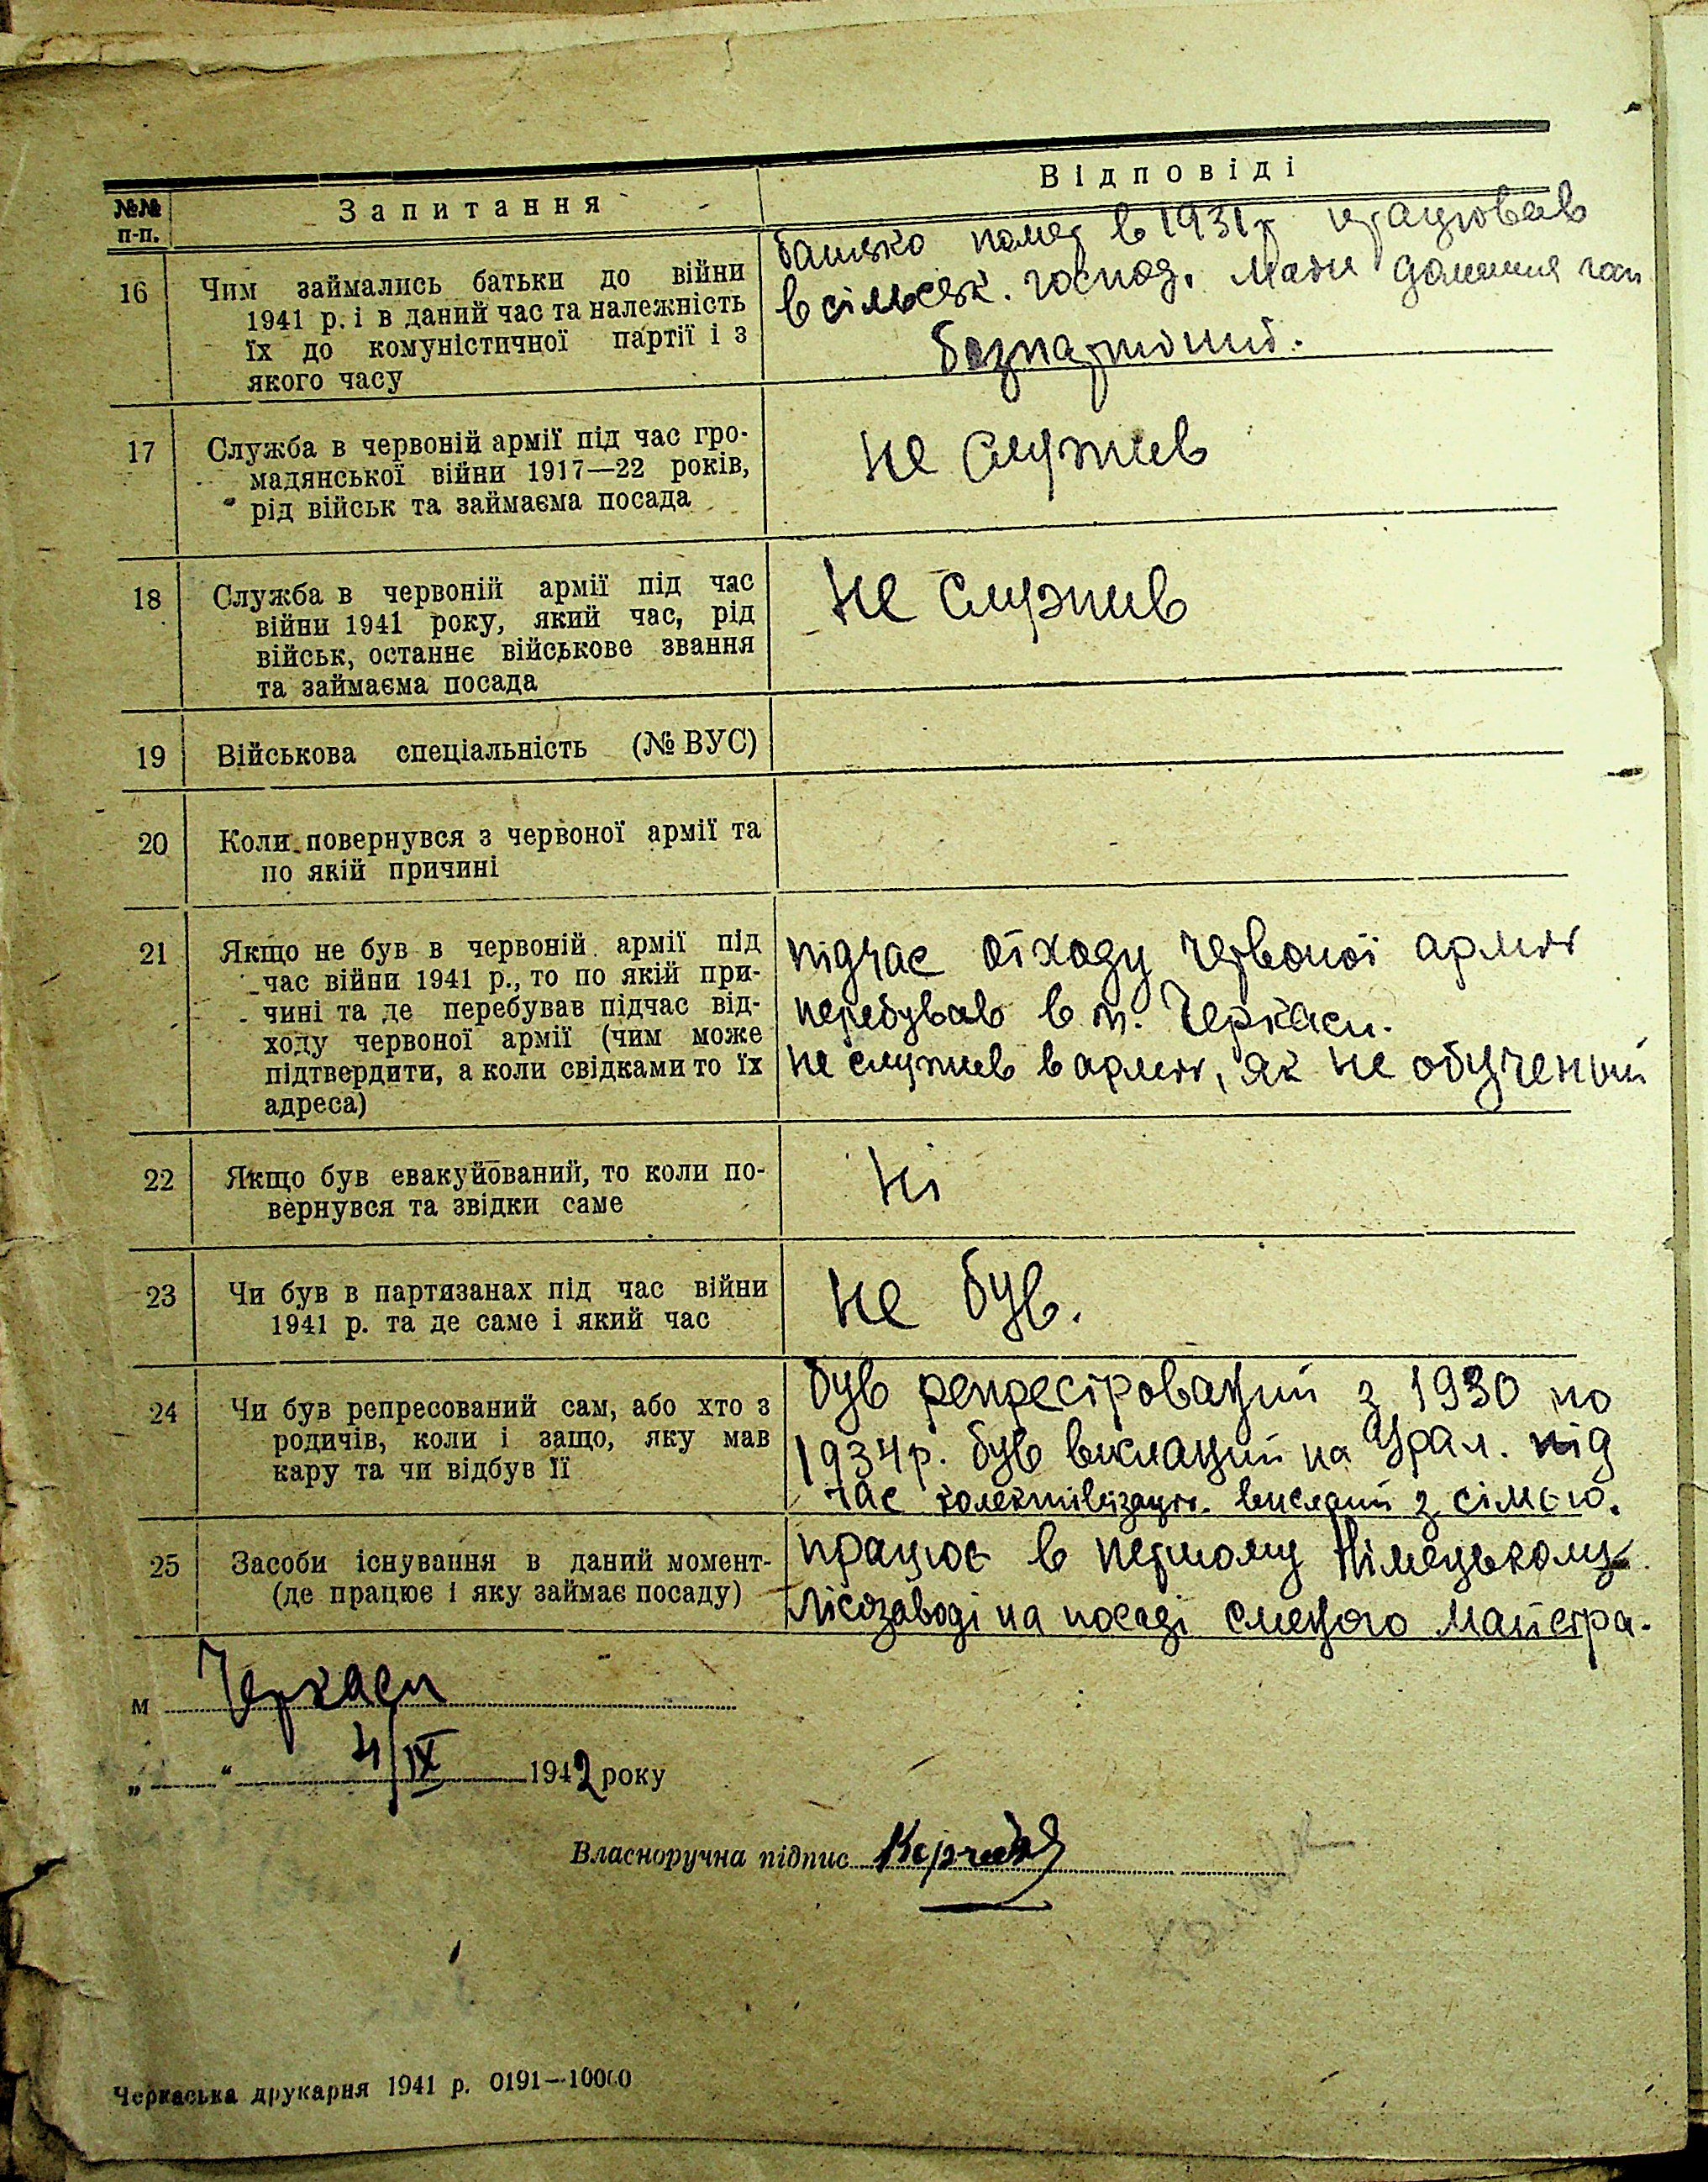 №№ п-п.
Запитання
Відповіді
16
Чим займались батьки до війни
1941 р. і в даний час та належність
їх до комуністичної партії і з
якого часу
батько помер в 1931 р працював
в сільськ. господ. Мати домашня госп
безпартійний.
17
Служба в червоній армії під час гро-
мадянської війни 1917—22 років,
рід військ та займаєма посада
не служив
18
Служба в червоній армії під час
війни 1941 року, який час, рід
військ, останнє військове звання
та займаєма посада
Не служив
19
Військова спеціальність (№ ВУС)
20
Коли повернувся з червоної армії та
по якій причині
21
Якщо не був в червоній армії під
час війни 1941 р., то по якій при-
чині та де перебував підчас від-
ходу червоної армії (чим може
підтвердити, а коли свідками то їх
адреса)
підчас отходу червоної армии
перебував в м. Черкаси.
не служив в армии, як не обученый
22
Якщо був евакуйований, то коли по-
вернувся та звідки саме
Ні
23
Чи був в партизанах під час війни
1941 р. та де саме і який час
не був.
24
Чи був репресований сам, або хто з
родичів, коли і защо, яку мав
кару та чи відбув її
був репресірований з 1930 по
1934 р. був висланий на Урал. під
час колективізации висланий з сімєю.
25
Засоби існування в даний момент-
(де працює і яку займає посаду)
працює в першому Німецькому
Лісозаводі на посаді сменого майстра.
м Черкаси
„ “ 4/IX 1942 року
Власноручна підпис
Черкаська друкарня 1941 р. 0191—10000